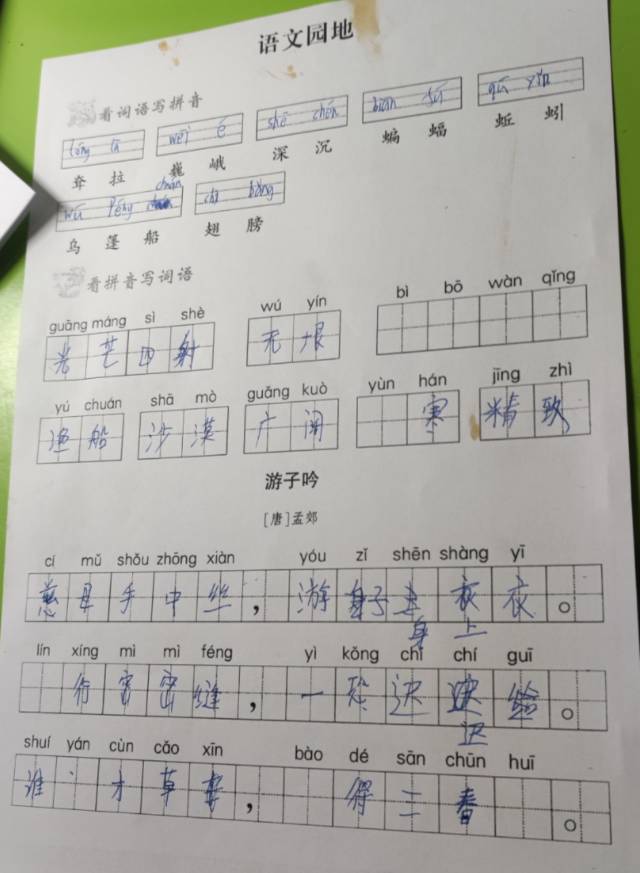 语文园地
看词语写拼音
wēi é shē chén biān fú qiū yǐn
耷拉 巍峨 深沉 蝙蝠 蚯蚓
wū péng chuán chì bǎng
乌篷船 翅膀
看拼音写词语
guāng máng sì shè wú yín bì bō wàn qǐng
光芒四射 无垠
yú chuán shā mò guǎng kuò yùn hán jīng zhì
渔船 沙漠 广阔 寒 精致
游子吟
[唐]孟郊
cí mǔ shǒu zhōng xiàn yóu zǐ shēn shàng yī
慈母手中丝，游子衣。
身上
lín xíng mì mì féng yì kǒng chí chí guī
行密密缝，一恐迟。
迟
shuí yán cùn cǎo xīn bào dé sān chūn huī
谁寸草，得三春。